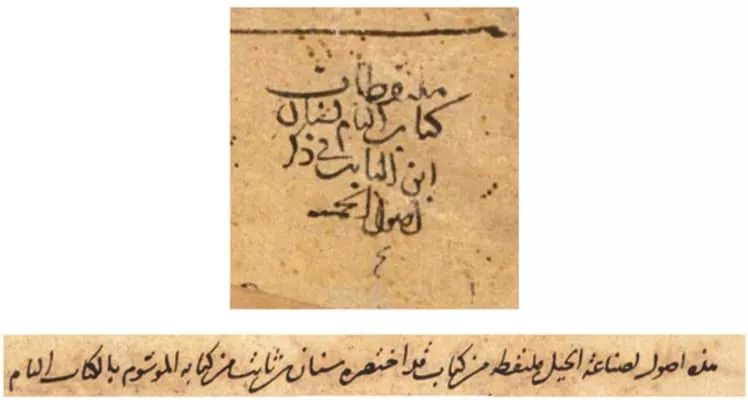 ملتقطات
كتاب التام لسنان
ابن الثابت في ذكر
اصول الخمسه
هذه اصول لصناعة الحيل ملتقطه من كتاب قد اختصره سنان بن ثابت من كتابه الموسوم بالكتاب التام